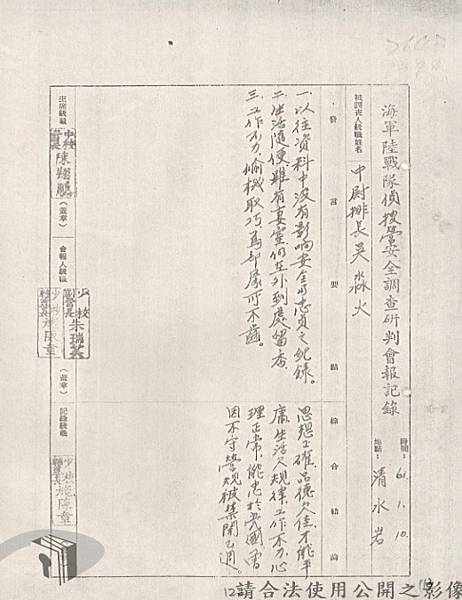 海軍陸戰隊偵搜營安全調查研判會報記錄
時間：61.1.10.
地點：清水岩
被調查人級職姓名
中尉排長吳淼火
發言要點
一、以往資料中沒有影响安全與忠貞之紀錄。
二、生活隨便，雖有妻室仍在外到處留香。
三、工作不力，偷機取巧，為部屬所不齒。
綜合結論
思想正確，品德欠佳，才能平
庸，生活欠規律，工作不力，心
理正常，能忠於党國，曾
因不守營規被禁閉乙週。
出席級職
中校
營長
陳翔鵬
（蓋章）
會報人級職
少校
副營長
朱瑞芝
（蓋章）
記錄級職
12請合法使用公開之影像